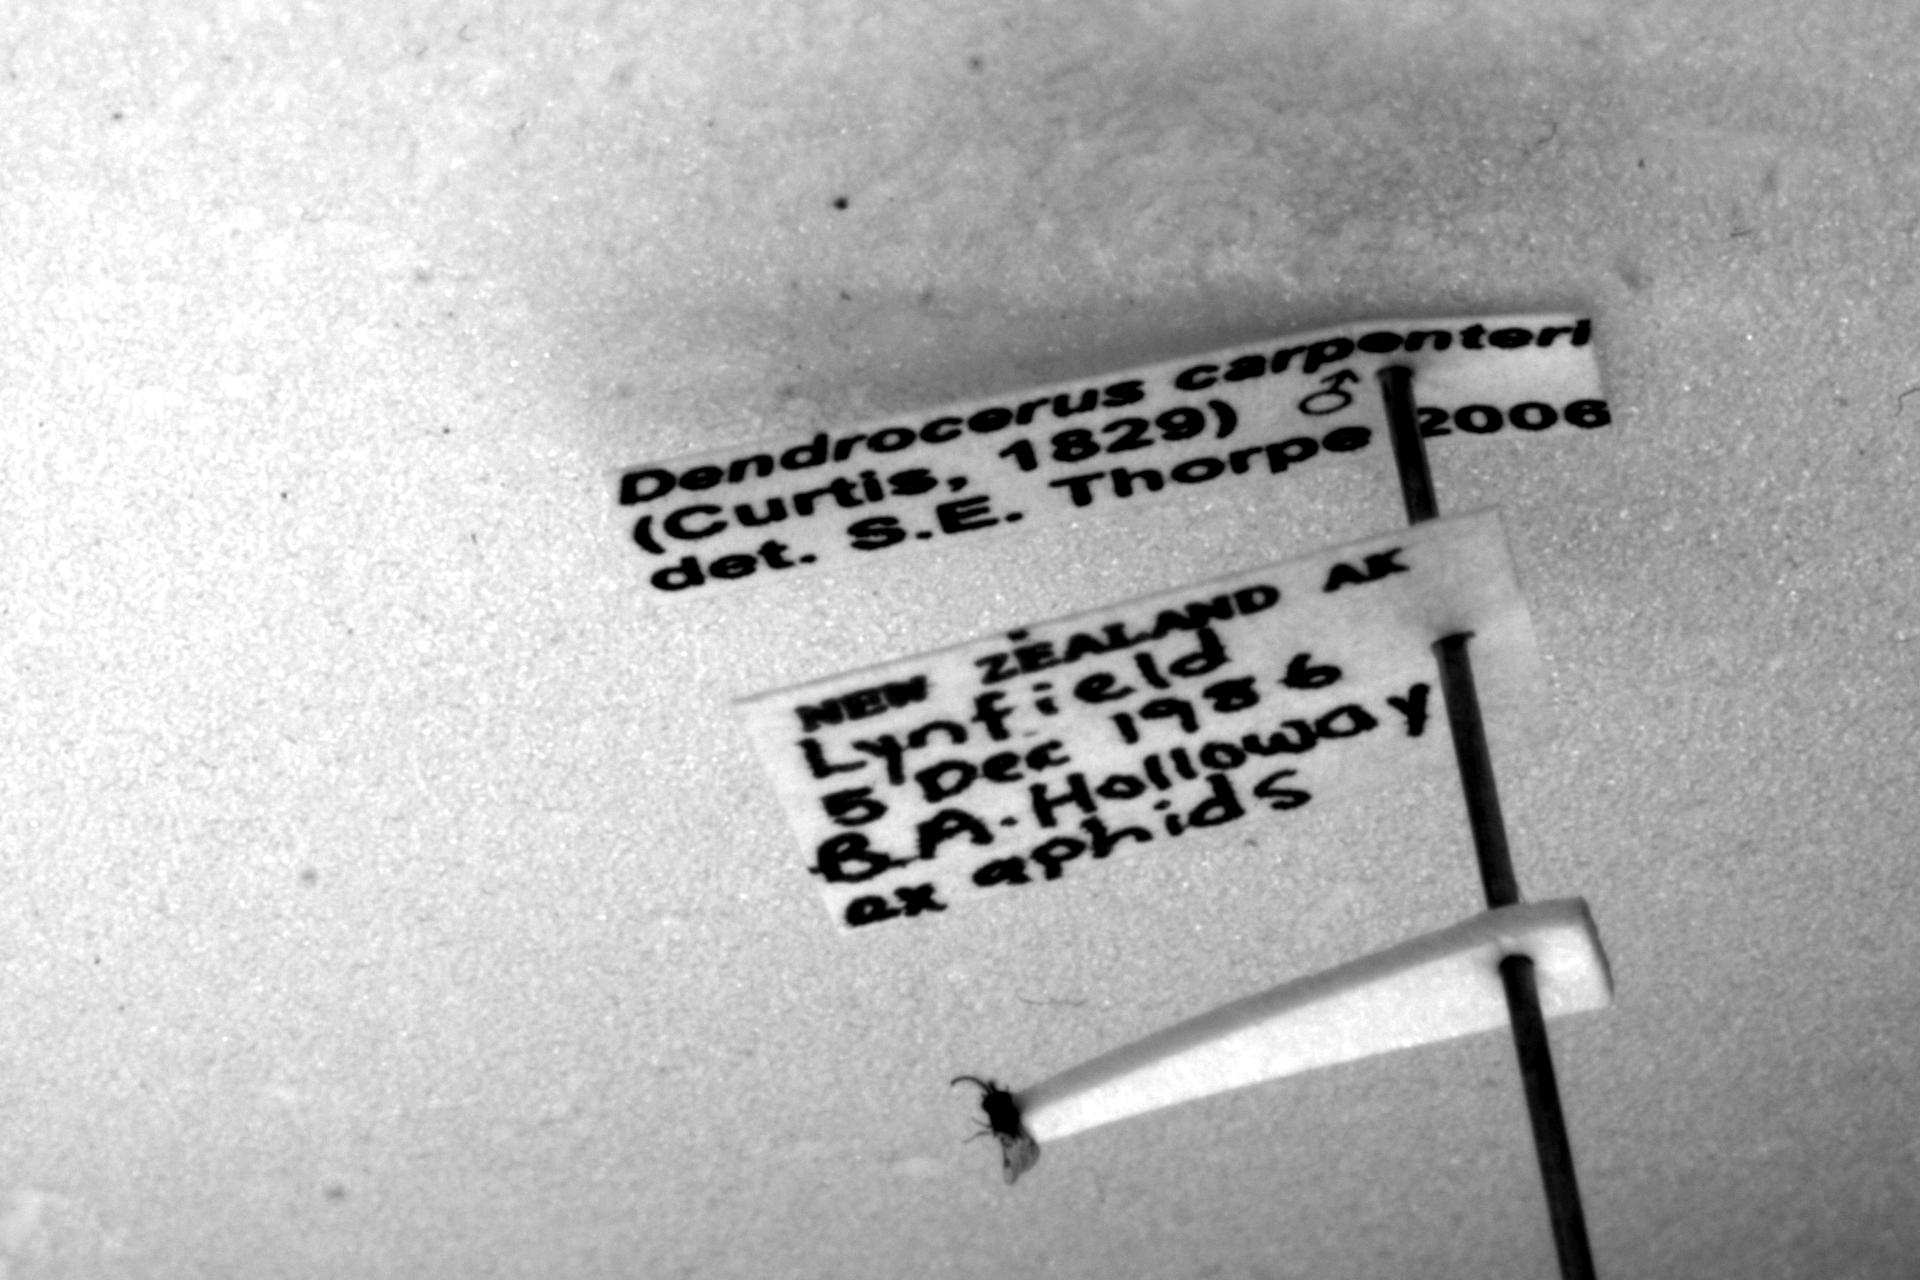 Dendrocerus carpenteri
(Curtis, 1829) ♂
det. S.E. Thorpe 2006
NEW ZEALAND AK
Lynfield
5 Dec 1986
B.A. Holloway
ex aphids